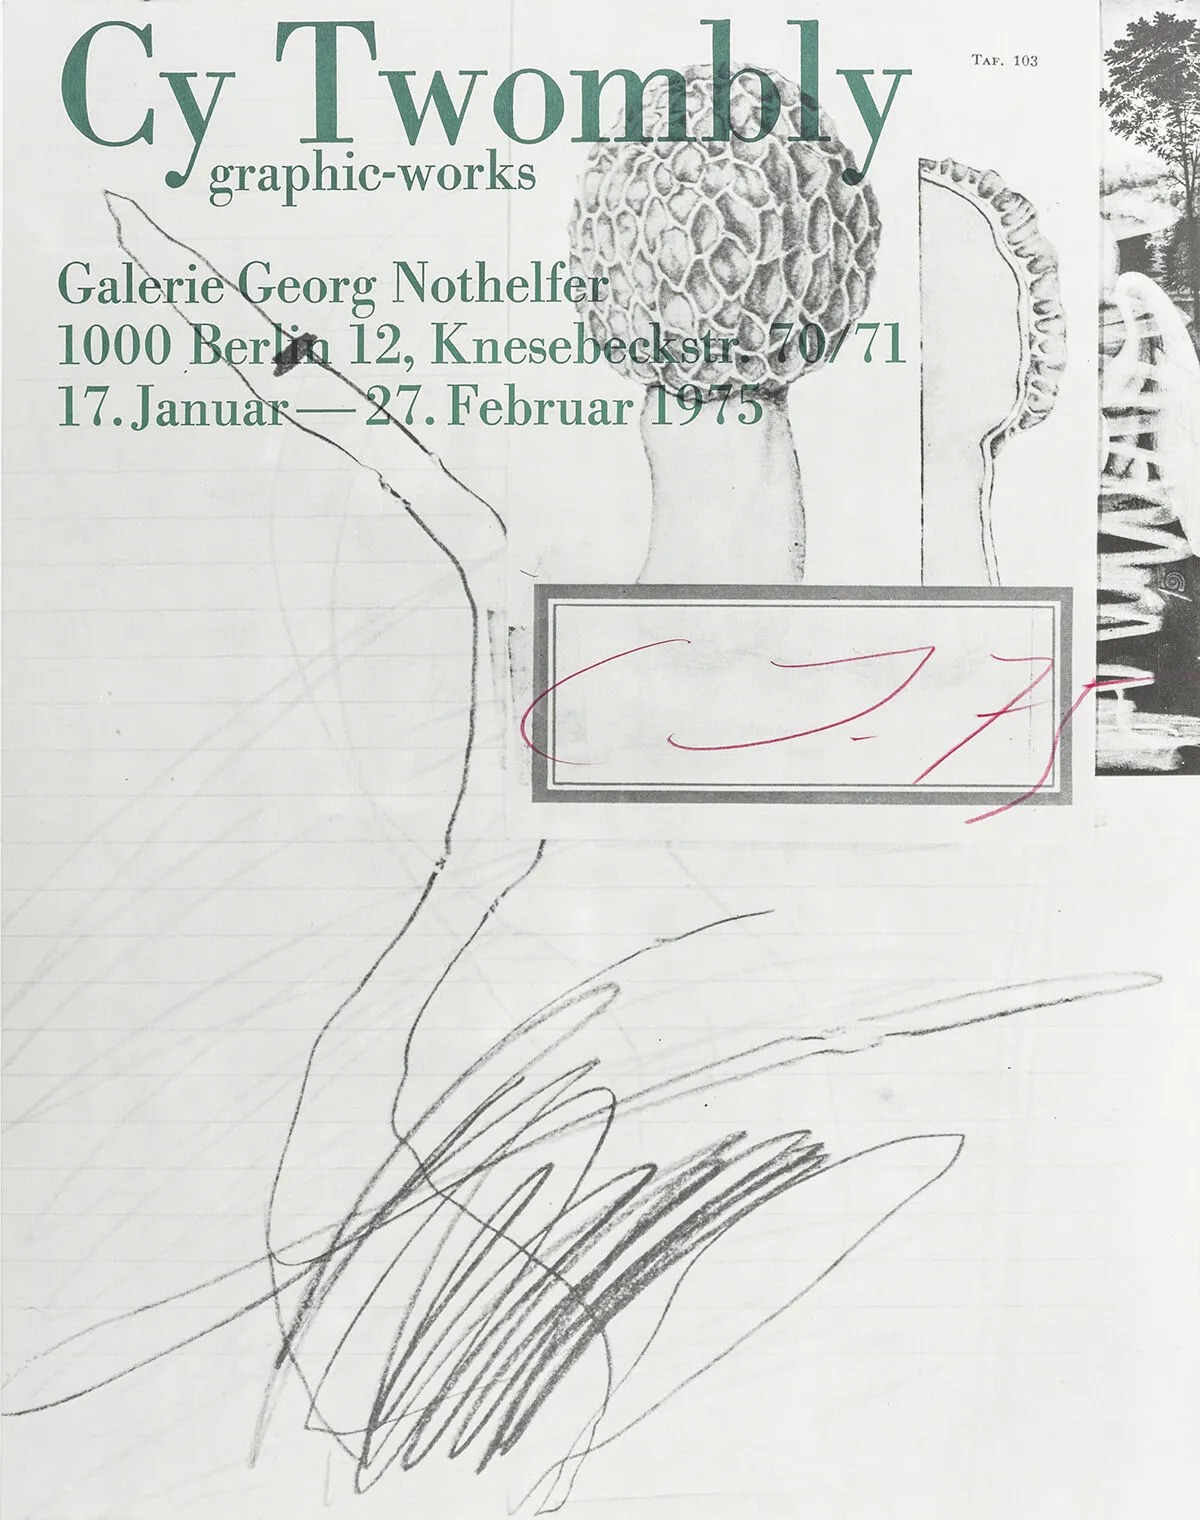 Cy Twombly
TAF. 103
graphic-works
Galerie Georg Nothelfer
1000 Berlin 12, Knesebeckstr. 70/71
17. Januar — 27. Februar 1975